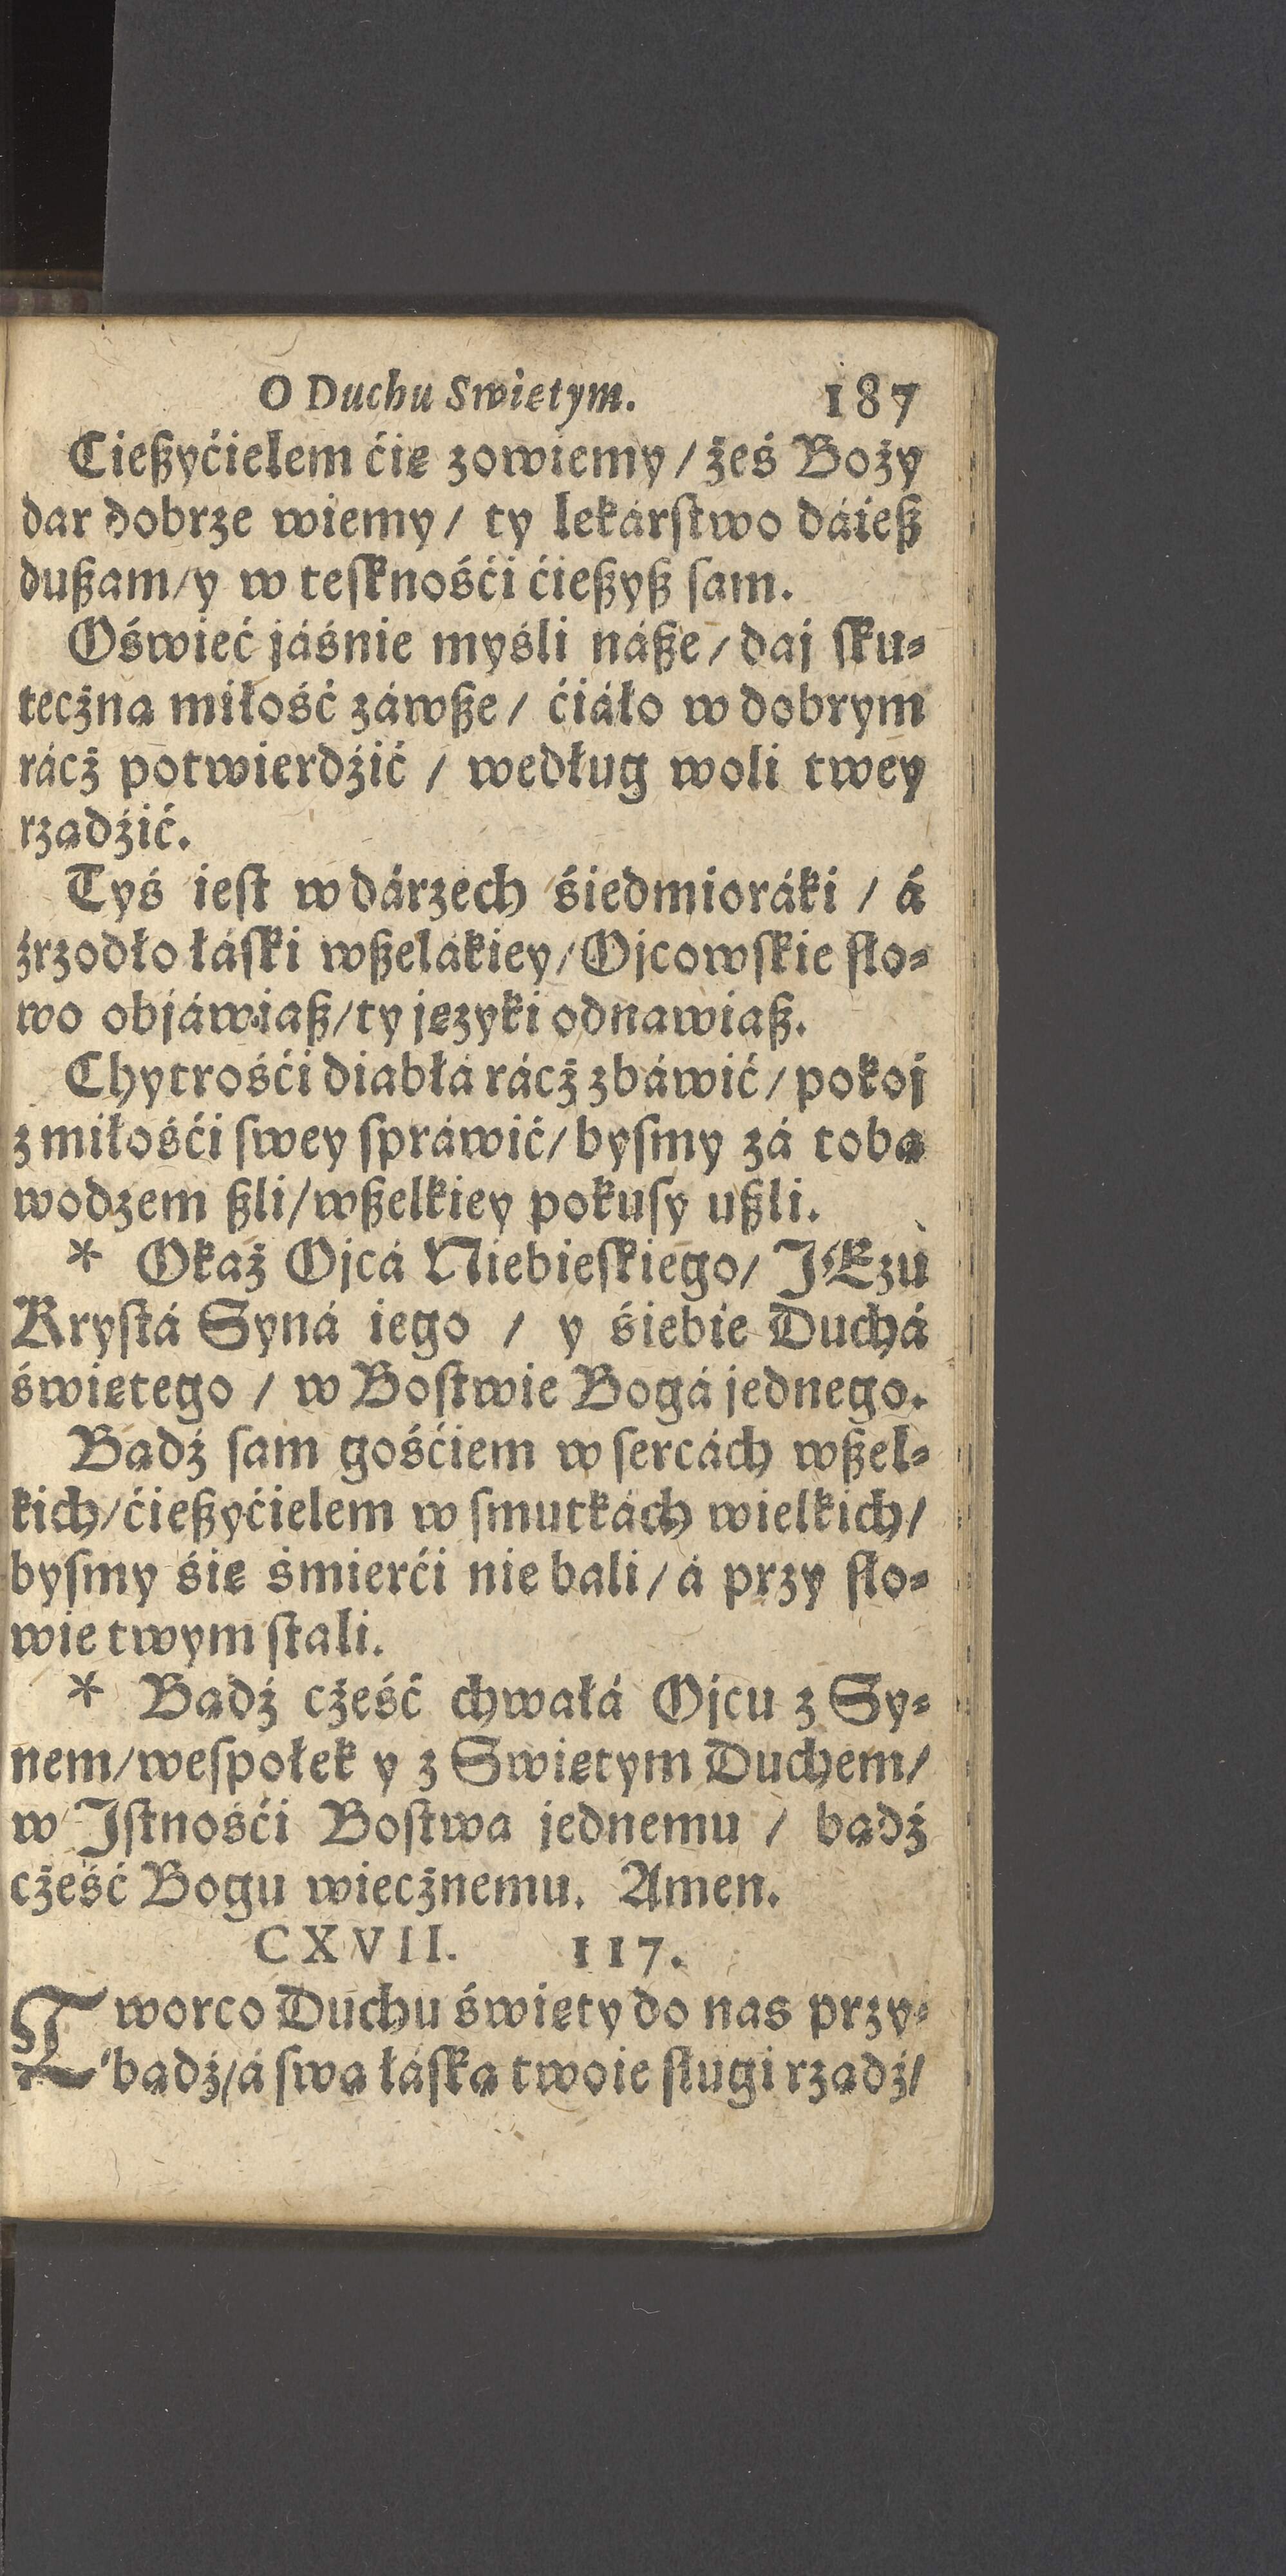 O Duchu Swiętym. 187
Cießyćielem ćię zowiemy / żeś Boży
dar dobrze wiemy / ty lekárſtwo dáieß
dußam / y w teſknośći ćießyß ſam.
Oświeć jáśnie myśli náße / daj ſku⸗
teczną miłość záwße / ćiáło w dobrym
rácż potwierdźić / według woli twey
rządźić.
Tyś ieſt w dárzech śiedmioráki / á
źrzodło łáſki wßelákiey / Ojcowſkie ſło⸗
wo objáwiaß / ty języki odnawiaß.
Chytrośći diabłá rácż zbáwić / pokoj
z miłośći ſwey ſpráwić / byſmy zá tobą
wodzem ßli / wßelkiey pokuſy ußli.
* Okaż Ojcá Niebieſkiego / JEzu
Kryſtá Syná iego / y śiebie Duchá
świętego / w Boſtwie Bogá jednego.
Bądź ſam gośćiem w ſercách wßel⸗
kich / ćießyćielem w ſmutkách wielkich /
byſmy śię śmierći nie bali / á przy ſło⸗
wie twym ſtali.
* Bądź cżeść chwałá Ojcu z Sy⸗
nem / weſpołek y z Swiętym Duchem /
w Jſtnośći Boſtwa jednemu / bądź
cżeść Bogu wiecżnemu. Amen.
CXVII. 117.
Tworco Duchu święty do nas przy⸗
bądź / á ſwą łáſką twoie ſługi rządź /